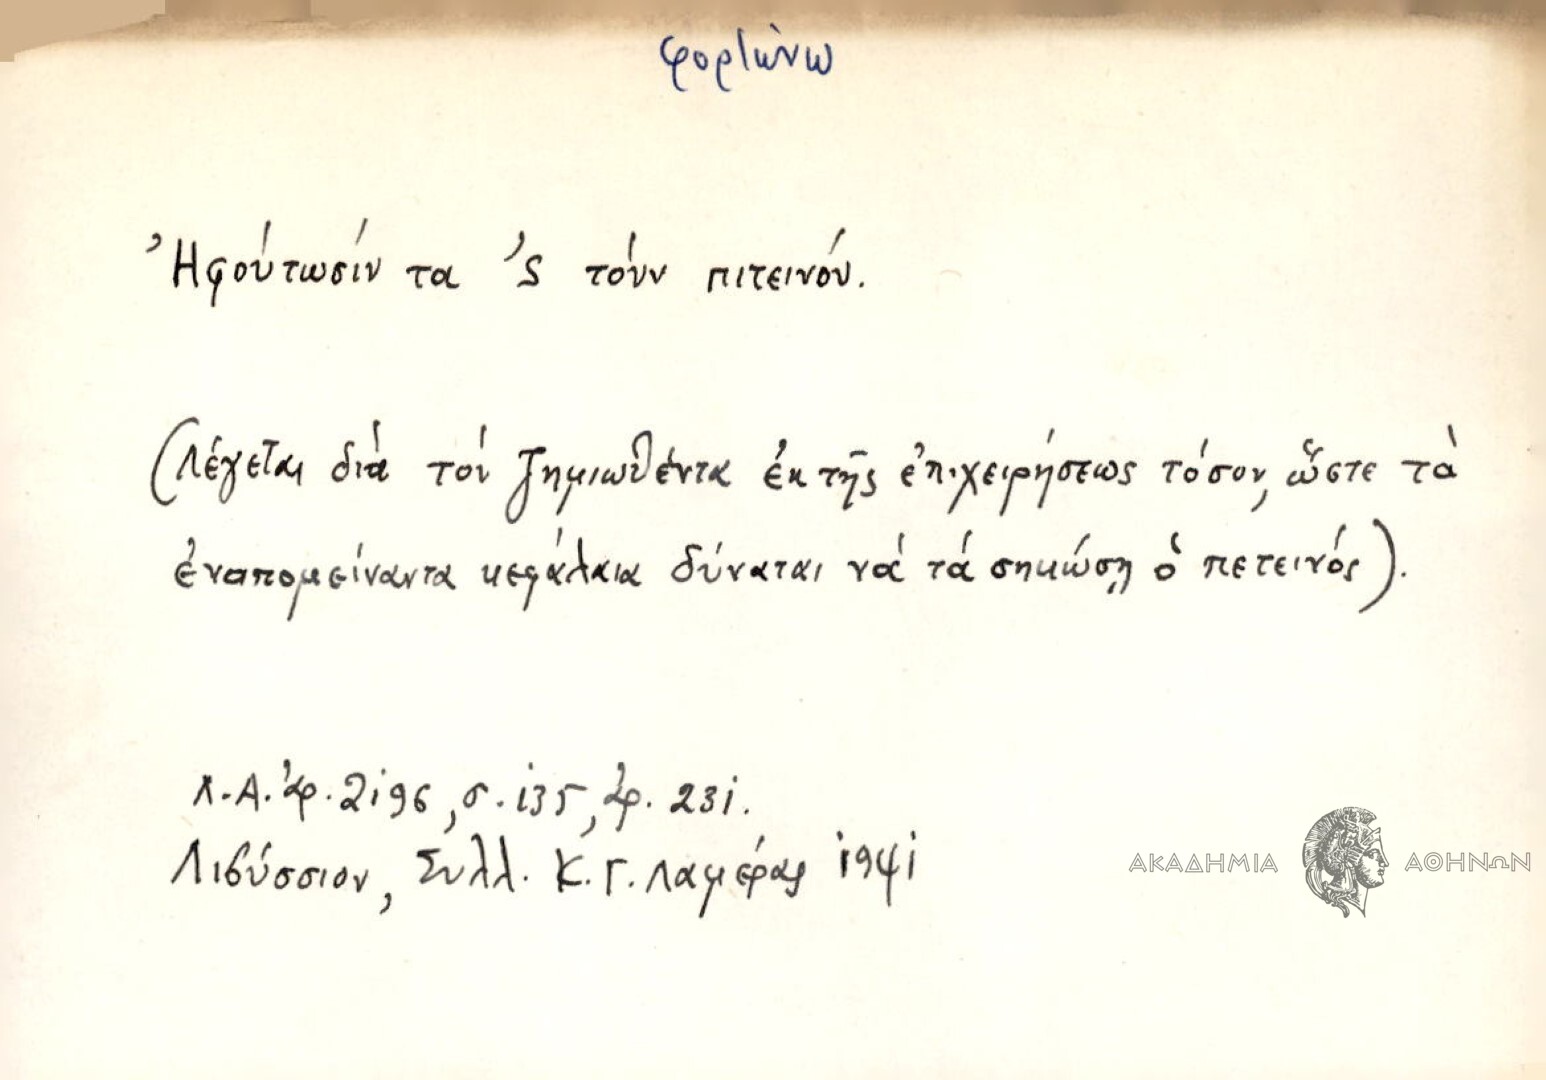 φορτώνω
Ἠφούτωσίν τα 'ς τούν πιτεινού.
(Λέγεται διά τον ζημιωθέντα ἐκ τῆς ἐπιχειρήσεως τόσον, ὥστε τὰ
ἐναπομείναντα κεφάλαια δύναται νά τά σηκώσῃ ὁ πετεινός).
Λ.Α. ἀρ. 2196, σ. 135, ἀρ. 231.
Λιβύσσιον, Συλλ. Κ. Γ. Λαμέρας 1941
ΑΚΑΔΗΜΙΑ ΑΘΗΝΩΝ